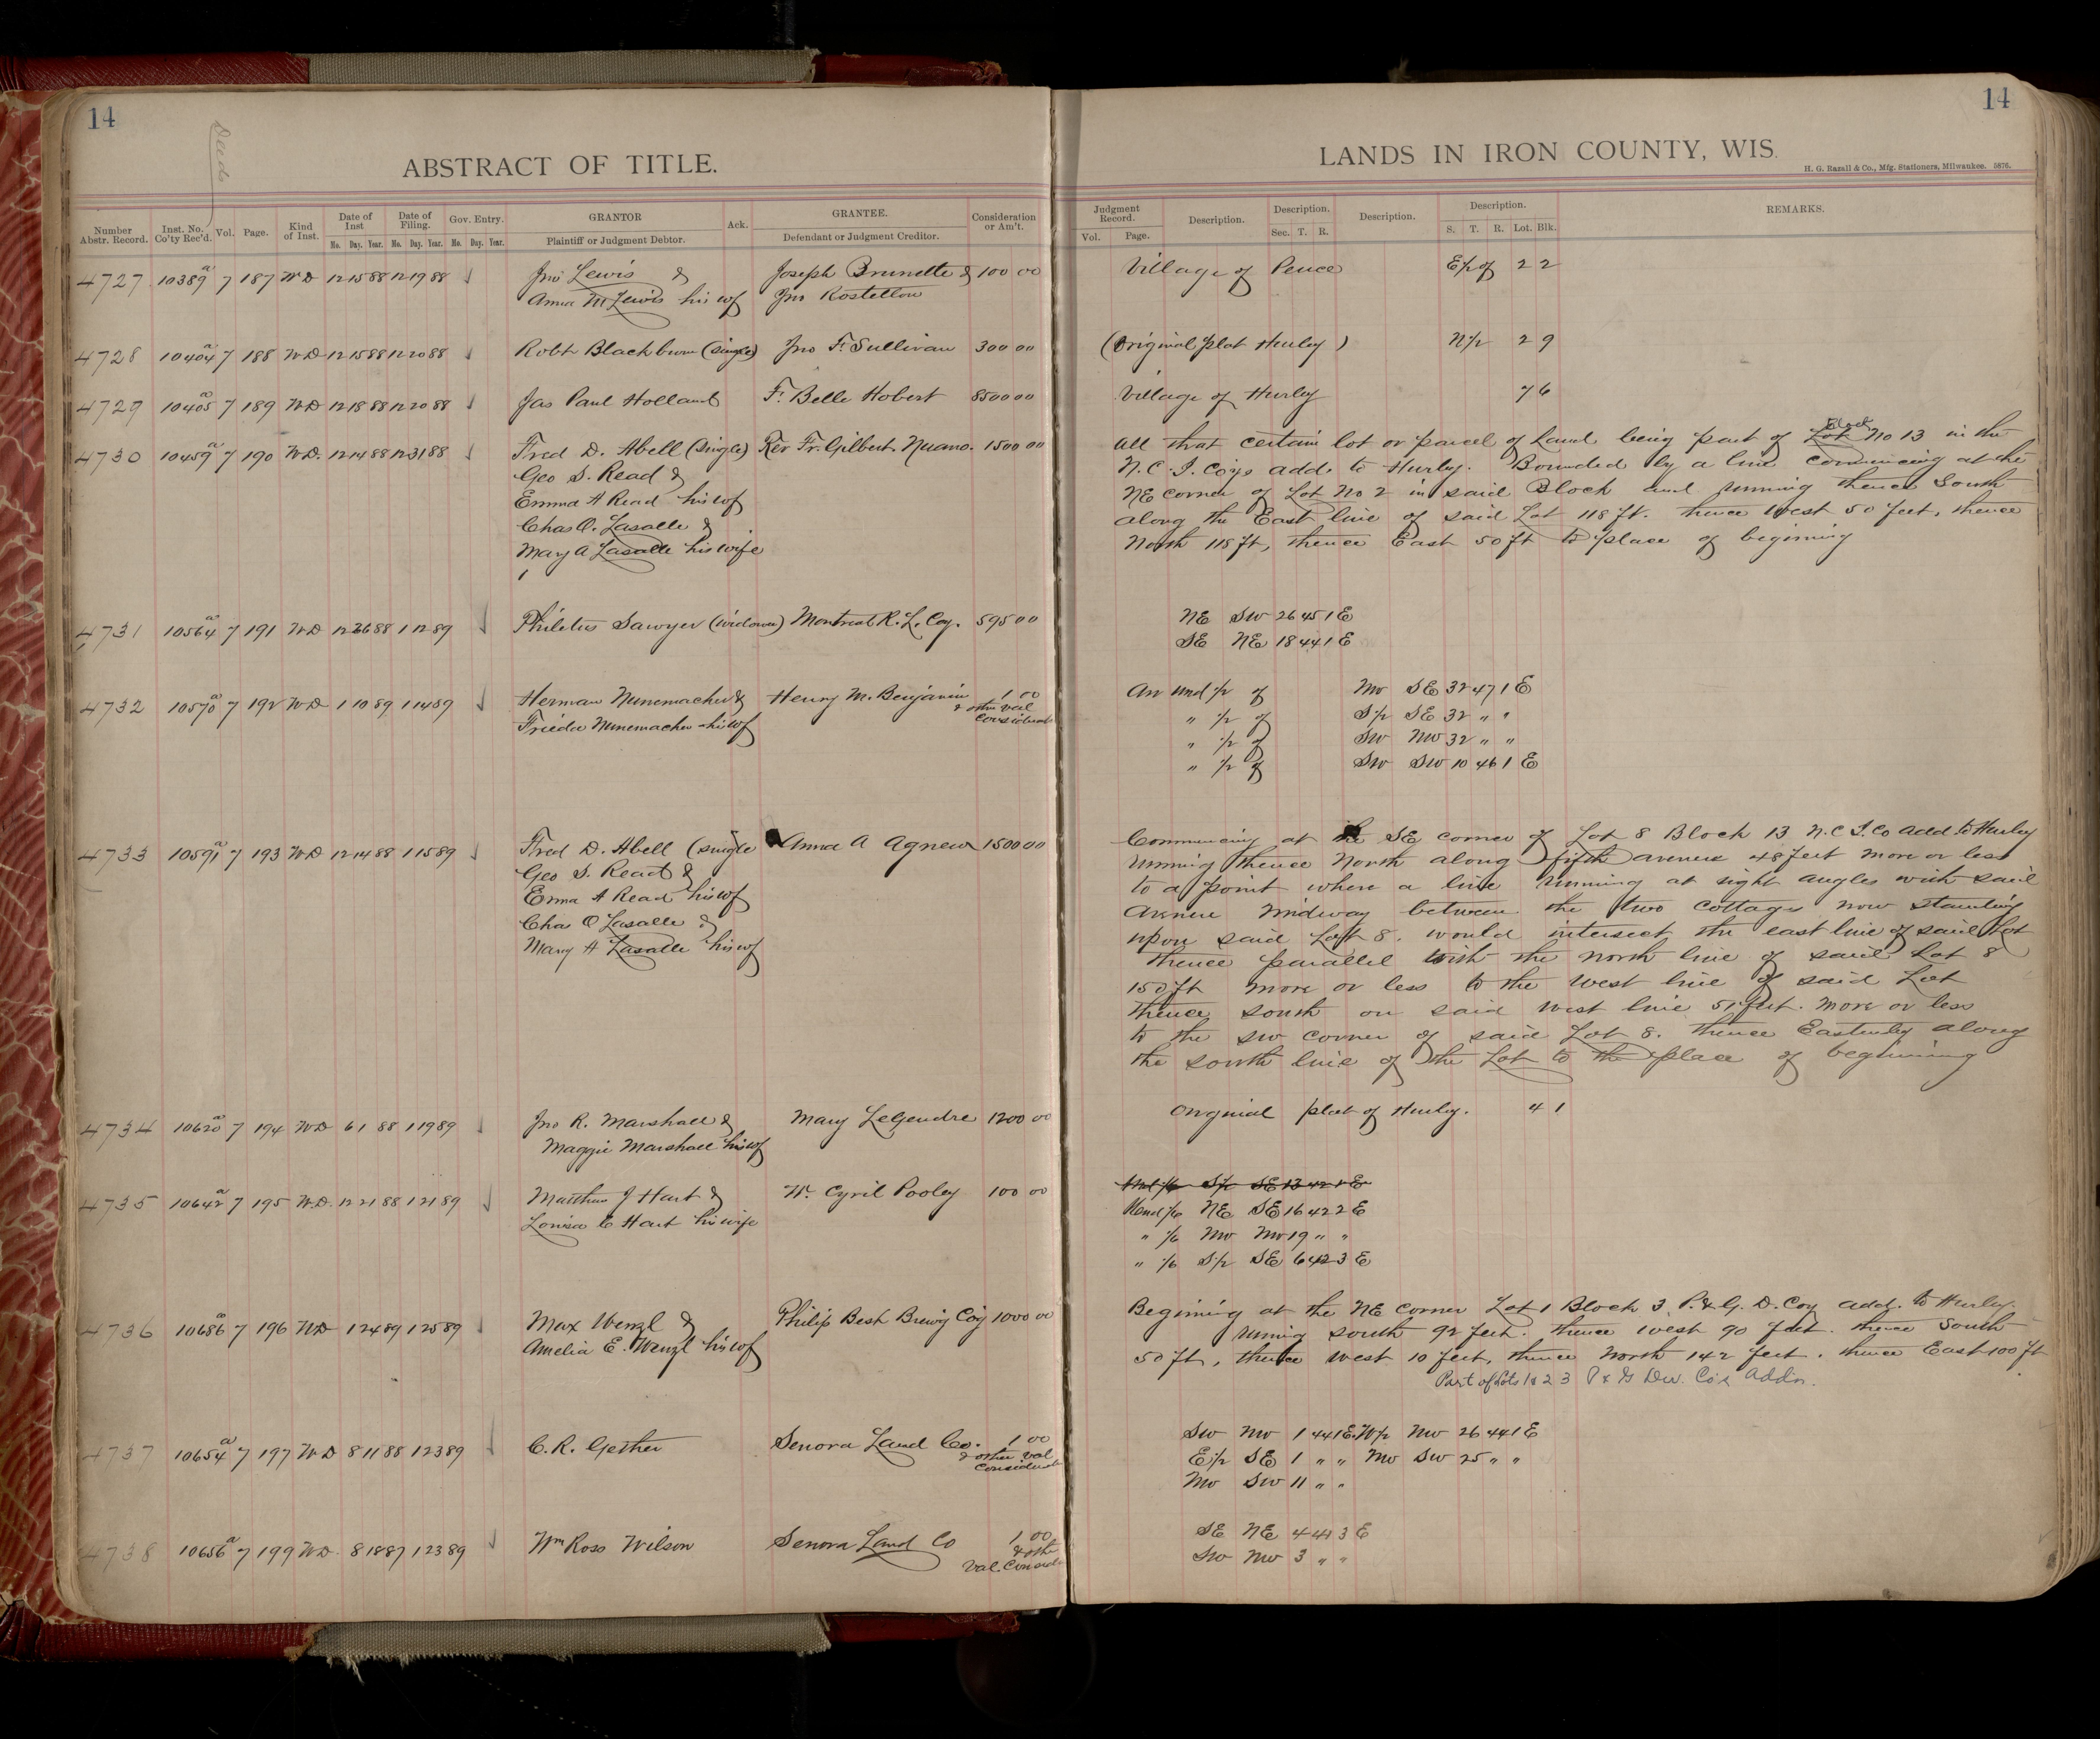 14
Deeds
ABSTRACT OF TITLE.
Number Abstr. Record. Inst. No. Co'ty Rec'd. Vol. Page. Kind of Inst. Date of Inst Mo. Day. Year. Date of Filing. Mo. Day. Year. Gov. Entry. Mo. Day. Year. GRANTOR Plaintiff or Judgment Debtor. Ack. GRANTEE. Defendant or Judgment Creditor. Consideration or Am't.
4727 10389a 7 187 WD 12 15 88 12 19 88 Jno Lewis & Joseph Brunette & 100 00
Anna M Lewis his wf Jno Rostettow
4728 10404a 7 188 WD 12 15 88 12 20 88 Robt Blackburn (single) Jno F. Sullivan 300 00
4729 10405a 7 189 WD 12 18 88 12 20 88 Jas Paul Holland F. Belle Hobert 8500 00
4730 10459a 7 190 WD. 12 14 88 12 31 88 Fred D. Abell (single) Rev Fr. Gilbert Nuano. 1500 00
Geo S. Read &
Emma A Read his wf
Chas O. Lasalle &
Mary A Lasalle his wife
4731 10564a 7 191 WD 12 26 88 1 12 89 Philetus Sawyer (widower) Montreal R. L. Coy. 595 00
4732 10570a 7 192 WD 1 10 89 1 14 89 Herman Nunemacher & Henry M. Benjamin 1 00
& other val
Frieda Nunemacher his wf Considerat
4733 10591a 7 193 WD 12 14 88 1 15 89 Fred D. Abell (single Anna A Agnew 1500 00
Geo S. Read &
Emma A Read his wf
Chas O Lasalle &
Mary A Lasalle his wf
4734 10620a 7 194 WD 6 1 88 1 19 89 Jno R. Marshall & Mary LeGendre 1200 00
Maggie Marshall his wf
4735 10642a 7 195 W.D. 12 21 88 1 21 89 Matthew J Hart & W. Cyril Pooley 100 00
Louisa C Hart his wife
4736 10686a 7 196 WD 1 24 89 1 25 89 Max Wenzl & Philip Best Brewg Coy 1000 00
Amelia E. Wenzl his wf
4737 10654a 7 197 WD 8 11 88 1 23 89 C. R. Gether Senora Land Co. 1 00
& other val
Considerat
4738 10656a 7 199 WD. 8 18 87 1 23 89 Wm Ross Wilson Senora Land Co 1 00
& othr
Val. Consid
14
LANDS IN IRON COUNTY, WIS.
H. G. Razall & Co., Mfg. Stationers, Milwaukee. 5876.
Judgment Record. Vol. Page. Description. Description. Sec. T. R. Description. Description. S. T. R. Lot. Blk. REMARKS.
Village of Pence E½ of 2 2
(Original plat Hurley) N½ 2 9
Village of Hurley 7 6
All that certain lot or parcel of Land being part of Lot Block No 13 in the
N.C.I. Coys add. to Hurley. Bounded by a line commencing at the
NE corner of Lot No 2 in said Block and running thence South
along the East line of said Lot 118 ft. thence West 50 feet, thence
North 118 ft, thence East 50 ft to place of begining
NE SW 26 45 1 E
SE NE 18 44 1 E
An und ½ of NW SE 32 47 1 E
" ½ of S½ SE 32 " "
" ½ of SW NW 32 " "
" ½ of SW SW 10 46 1 E
Commencing at the SE corner of Lot 8 Block 13 N.C.I. Co add. to Hurley
running thence North along fifth avenue 48 feet more or less
to a point where a line running at right angles with said
Avenue midway between the two cottages now standing
upon said Lot 8. would intersect the east line of said Lot
thence parallel with the north line of said Lot 8
150 ft more or less to the west line of said Lot
thence south on said west line 51 feet. more or less
to the SW corner of said Lot 8. thence Easterly along
the south line of the Lot to the place of beginning
Original plat of Hurley. 4 1
Und 1/6 S½ SE 13 42 1 E
Und 1/6 NE SE 16 42 2 E
" 1/6 NW NW 19 " "
" 1/6 S½ SE 6 42 3 E
Begining at the NE corner Lot 1 Block 3 P. & G. D. Coy add. to Hurley.
runing south 92 feet. thence west 90 feet. thence South
50 ft, thence west 10 feet, thence North 142 feet, thence East 100 ft
Part of Lots 1 & 2 3 P & G Dev. Co's Addn.
SW NW 1 44 1 E. W½ NW 26 44 1 E
E½ SE 1 " " NW SW 25 " "
NW SW 11 " "
SE NE 4 44 3 E
SW NW 3 " "